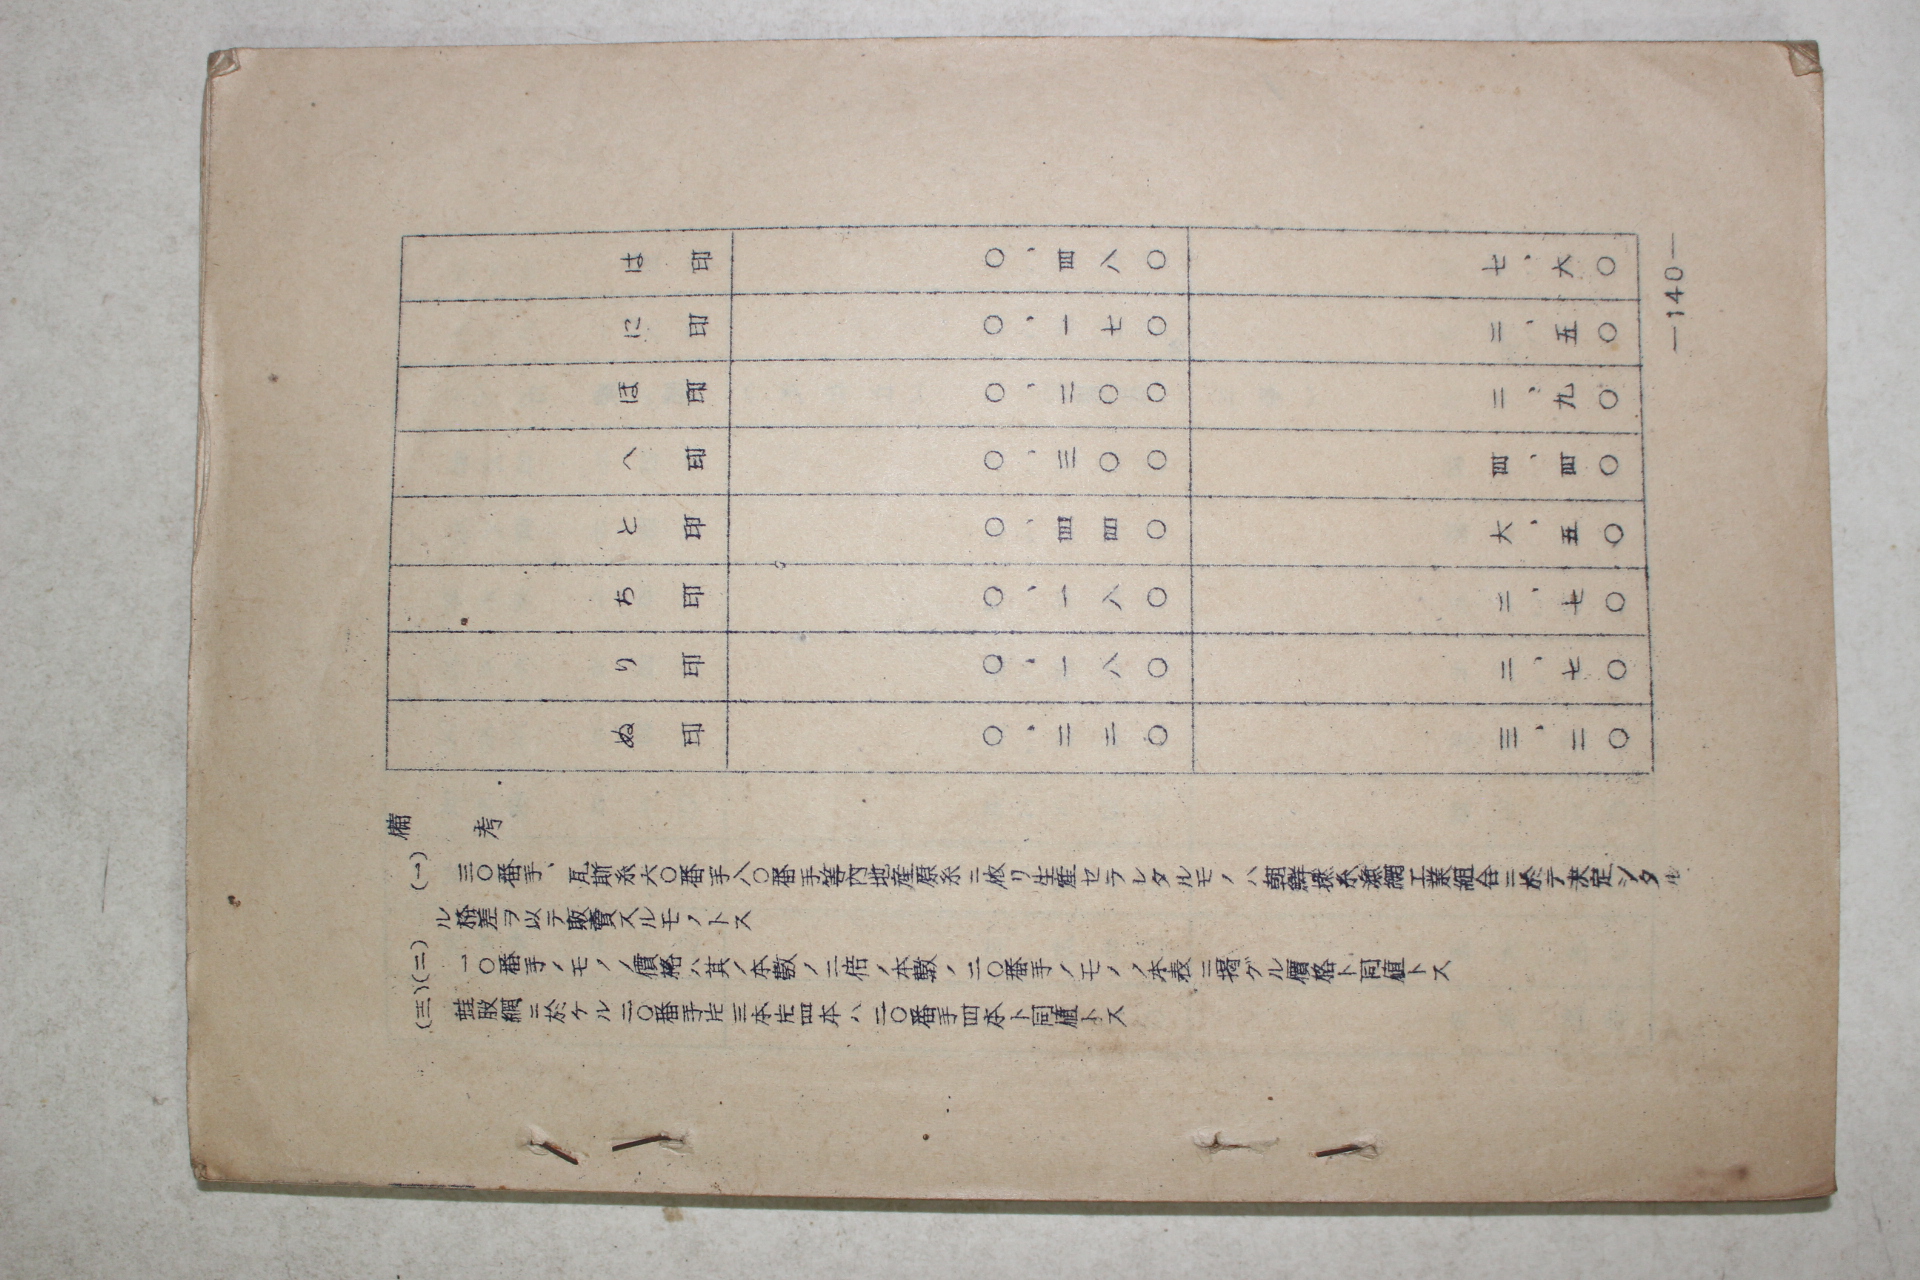 —140—
は印 〇、四八〇 七、六〇
に印 〇、一七〇 二、五〇
ほ印 〇、二〇〇 二、九〇
へ印 〇、三〇〇 四、四〇
と印 〇、四四〇 六、五〇
ち印 〇、一八〇 二、七〇
り印 〇、一八〇 二、七〇
ぬ印 〇、二二〇 三、二〇
備考
(一) 三〇番手、瓦斯糸六〇番手八〇番手等内地産原糸ニ依リ生産セラレタルモノハ朝鮮撚糸漁網工業組合ニ於テ決定シタ
ル格差ヲ以テ販賣スルモノトス
(二) 一〇番手ノモノノ價格ハ其ノ本數ノ二倍ノ本數ノ二〇番手ノモノノ本表ニ揭グル價格ト同値トス
(三) 蛙股網ニ於ケル二〇番手片三本片四本ハ二〇番手四本ト同値トス